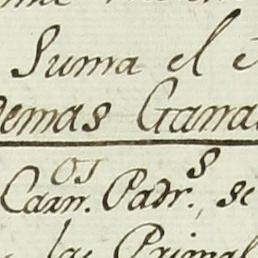 Suma el
demas Ganad
Carn.os Padr.s, se
las Primal